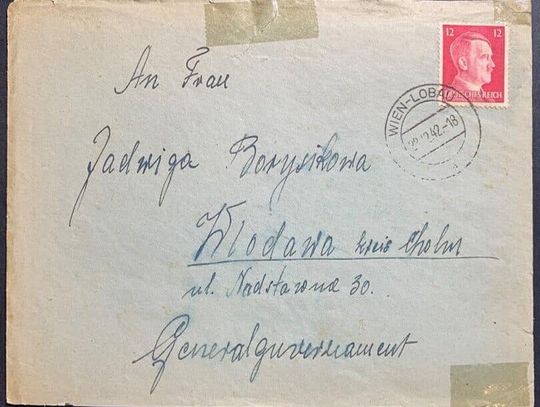 12 12
DEUTSCHES REICH
WIEN-LOBAU
12.42.-18
An Frau
Jadwiga Borysikowa
Włodawa kreis Cholm
ul. Nadstawna 30.
Generalguvernament